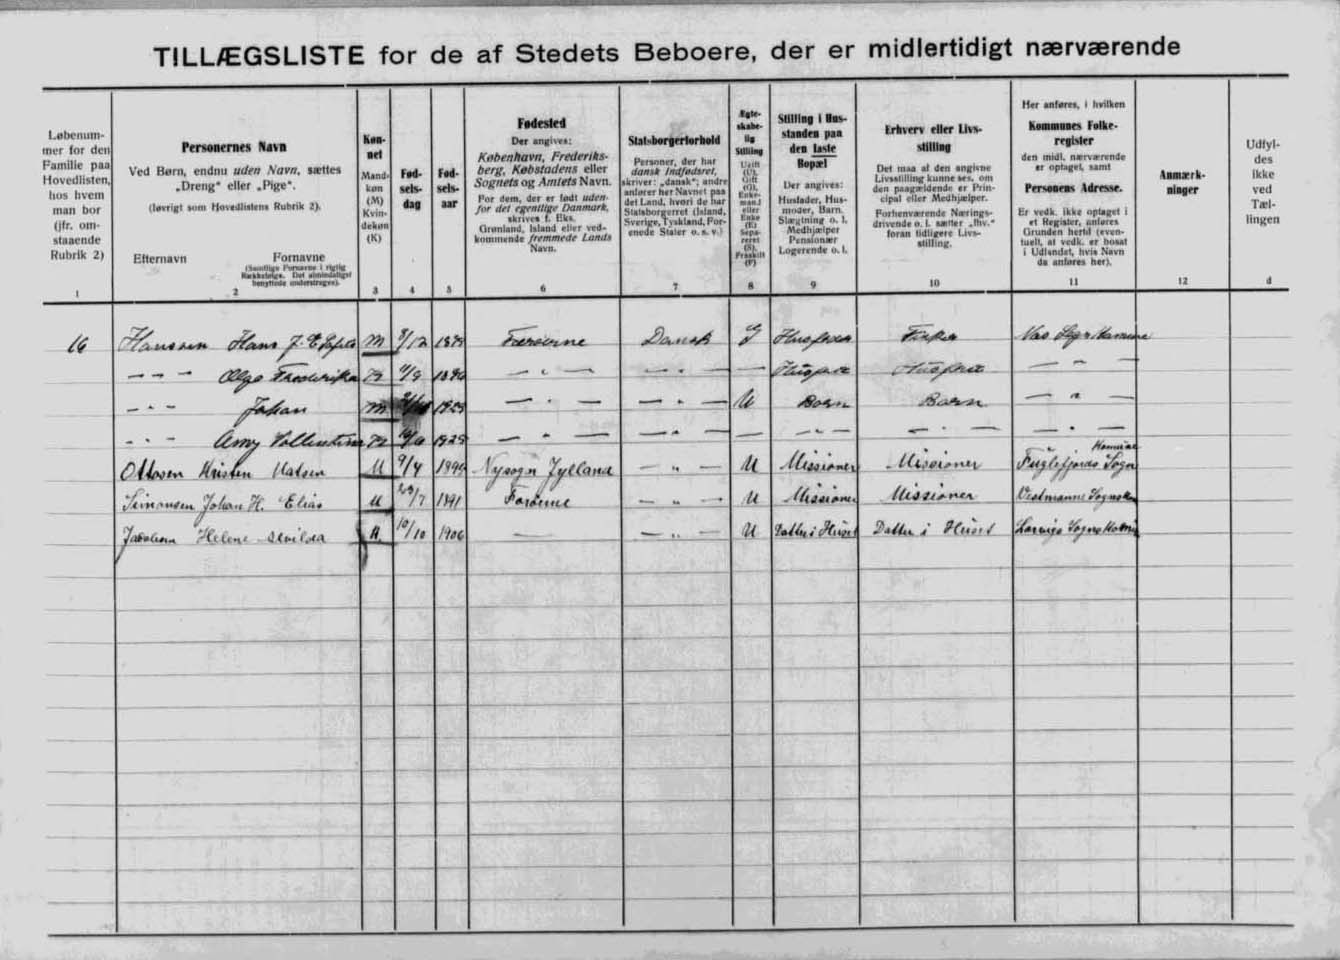 TILLÆGSLISTE for de af Stedets Beboere, der er midlertidigt nærværende
Løbenum-
mer for den
Familie paa
Hovedlisten,
hos hvem
man bor
(jfr. om-
staaende
Rubrik 2)
1
Personernes Navn
Ved Børn, endnu uden Navn, sættes
„Dreng“ eller „Pige“.
(Iøvrigt som Hovedlistens Rubrik 2).
Efternavn
Fornavne
(Samtlige Fornavne i rigtig
Rækkefølge. Det almindeligst
benyttede understreges).
2
Køn-
net
Mand-
køn
(M)
Kvin-
dekøn
(K)
3
Fød-
sels-
dag
4
Fød-
sels-
aar
5
Fødested
Der angives:
København, Frederiks-
berg, Købstadens eller
Sognets og Amtets Navn.
For dem, der er født uden-
for det egentlige Danmark,
skrives f. Eks.
Grønland, Island eller ved-
kommende fremmede Lands
Navn.
6
Statsborgerforhold
Personer, der har
dansk Indfødsret,
skriver: „dansk“; andre
anfører her Navnet paa
det Land, hvori de har
Statsborgerret (Island,
Sverige, Tyskland, For-
enede Stater o. s. v.)
7
Ægte-
skabe-
lig
Stilling
Ugift
(U),
Gift
(G),
Enke-
mand
eller
Enke
(E)
Sepa-
reret
(S),
Fraskilt
(F)
8
Stilling i Hus-
standen paa
den faste
Bopæl
Der angives:
Husfader, Hus-
moder, Barn,
Slægtning o. l.
Medhjælper
Pensionær
Logerende o. l.
9
Erhverv eller Livs-
stilling
Det maa af den angivne
Livsstilling kunne ses, om
den paagældende er Prin-
cipal eller Medhjælper.
Forhenværende Nærings-
drivende o. l. sætter „fhv.“
foran tidligere Livs-
stilling.
10
Her anføres, i hvilken
Kommunes Folke-
register
den midl. nærværende
er optaget, samt
Personens Adresse.
Er vedk. ikke optaget i
et Register, anføres
Grunden hertil (even-
tuelt, at vedk. er bosat
i Udlandet, hvis Navn
da anføres her).
11
Anmærk-
ninger
12
Udfyl-
des
ikke
ved
Tæl-
lingen
d
16 Hansen Hans J. M /12 Færøerne Dansk G Husfader Fisker Nes Sogn Kommune
— " — Olga Frederikke K /9 — " — — " — Husfrue Husfrue — " —
— " — Johan M — " — — " — U Barn Barn — " —
— " — Amy K — " — — " — — — " — — " — — " —
Ottosen Kristen Madsen M 9/4 Nysogn Jylland — " — U Missioner Missioner Fuglefjords Sogn Komune
Simonsen Johan H. Elias M 23/7 1891 Færøerne — " — U Missioner Missioner Vestmanna
Helene K 10/10 1906 — — " — U Datter i Huset Datter i Huset Sogns